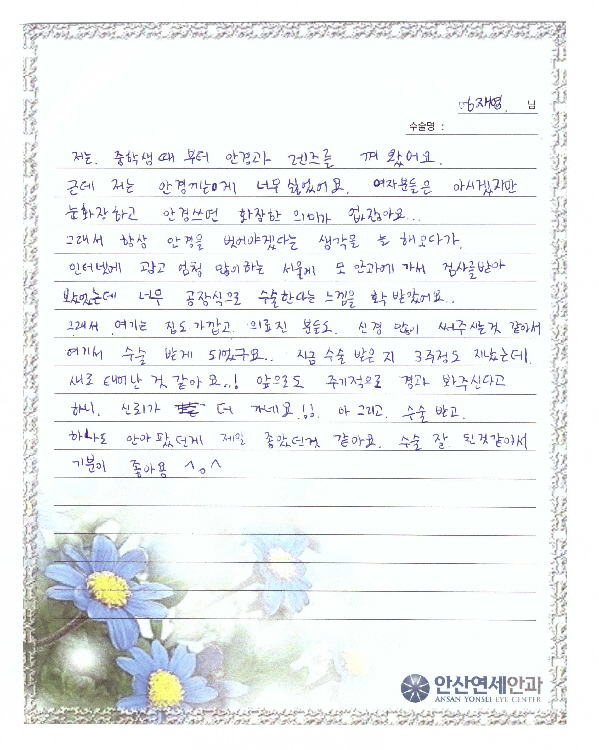 재영. 님
수술명 :
저는. 중학생때 부터 안경과 렌즈를 껴 왔어요.
근데 저는 안경끼는게 너무 싫었어요. 여자분들은 아시겠지만
눈화장하고 안경쓰면 화장한 의미가 없잖아요...
그래서 항상 안경을 벗어야겠다는 생각을 늘 해오다가.
인터넷에 광고 엄청 많이하는 서울에 모 안과에 가서 검사를받아
봤었는데 너무 공장식으로 수술한다는 느낌을 확 받았어요..
그래서 여기는 집도 가깝고. 의료진 분들도. 신경 많이 써주시는것 같아서
여기서 수술 받게 되었구요.. 지금 수술 받은 지 3주정도 지났는데.
새로 태어난 것 같아요..! 앞으로도 주기적으로 경과 봐주신다고
하니. 신뢰가 더 가네요!!. 아 그리고. 수술 받고.
하나도 안아팠던게 제일 좋았던것 같아요. 수술 잘 된것같아서
기분이 좋아용 ^o^
안산연세안과
ANSAN YONSEI EYE CENTER